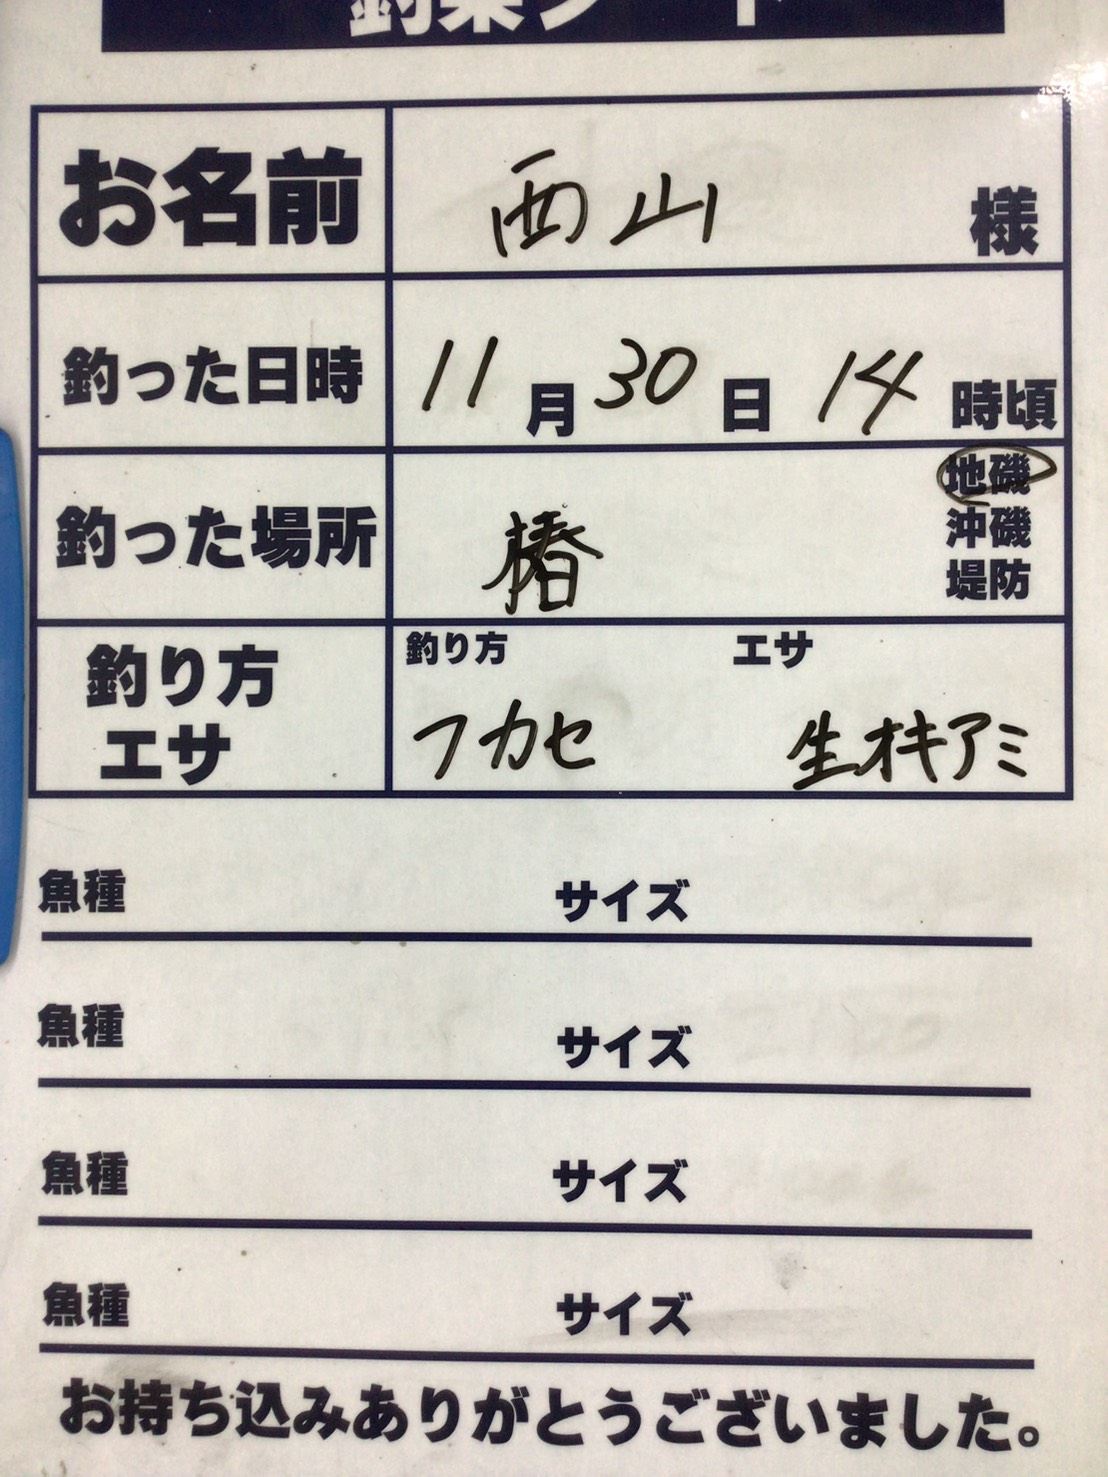 釣果シート
お名前 西山 様
釣った日時 11月30日14時頃
釣った場所 椿 地磯
沖磯
堤防
釣り方 エサ
釣り方 エサ
フカセ 生オキアミ
魚種 サイズ
魚種 サイズ
魚種 サイズ
魚種 サイズ
お持ち込みありがとうございました。